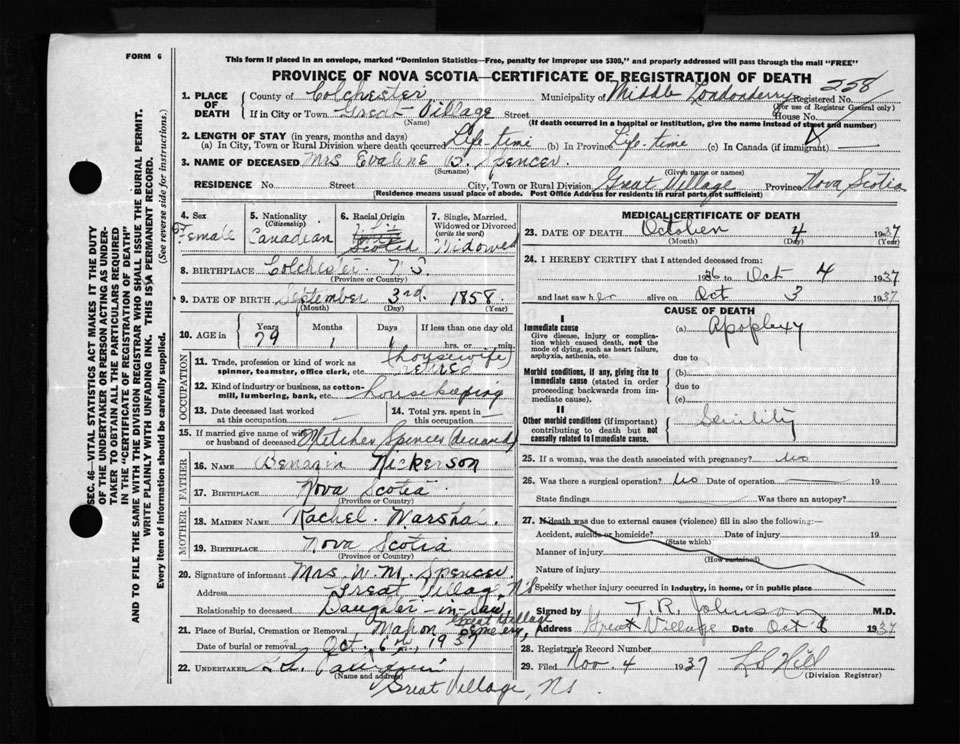 FORM 6
This form if placed in an envelope, marked "Dominion Statistics—Free, penalty for improper use $300," and properly addressed will pass through the mail "FREE"
PROVINCE OF NOVA SCOTIA—CERTIFICATE OF REGISTRATION OF DEATH
258
1. PLACE OF DEATH
County of Colchester Municipality of Middle Londonderry Registered No.
(For use of Registrar General only)
If in City or Town Great Village Street House No.
(Name) (If death occurred in a hospital or institution, give the name instead of street and number)
2. LENGTH OF STAY (in years, months and days)
(a) In City, Town or Rural Division where death occurred Life-time (b) In Province Life-time (c) In Canada (if immigrant) —
3. NAME OF DECEASED Mrs Evaline B. Spencer.
(Surname) (Given name or names)
RESIDENCE No. Street City, Town or Rural Division Great Village Province Nova Scotia
(Residence means usual place of abode. Post Office Address for residents in rural parts not sufficient)
4. Sex
Female
5. Nationality (Citizenship)
Canadian
6. Racial Origin
Scotch
7. Single, Married, Widowed or Divorced (write the word)
Widowed
8. BIRTHPLACE Colchester N S
(Province or Country)
9. DATE OF BIRTH September 3rd. 1858.
(Month) (Day) (Year)
10. AGE in
Years Months Days If less than one day old
79 1 1 hrs. or min.
OCCUPATION
11. Trade, profession or kind of work as spinner, teamster, office clerk, etc. (housewife) retired
12. Kind of industry or business, as cotton-mill, lumbering, bank, etc. housekeeping
13. Date deceased last worked at this occupation —
14. Total yrs. spent in this occupation
15. If married give name of wife or husband of deceased Spencer deceased
FATHER
16. NAME Nickerson
17. BIRTHPLACE Nova Scotia
(Province or Country)
MOTHER
18. MAIDEN NAME Rachel.
19. BIRTHPLACE Nova Scotia
(Province or Country)
20. Signature of informant Mrs W. M. Spencer
Address Great Village, N S
Relationship to deceased Daughter-in-law
21. Place of Burial, Cremation or Removal Mahon Cemetery, Great Village
Date of burial or removal Oct. 6th, 1937
22. UNDERTAKER
(Name and address)
Great Village, NS.
MEDICAL CERTIFICATE OF DEATH
23. DATE OF DEATH October 4 1937
(Month) (Day) (Year)
24. I HEREBY CERTIFY that I attended deceased from:
1936 to Oct 4 1937
and last saw her alive on Oct 3 1937
CAUSE OF DEATH
I
Immediate cause
Give disease, injury or complication which caused death, not the mode of dying, such as heart failure, asphyxia, asthenia, etc.
(a) Apoplexy
due to
Morbid conditions, if any, giving rise to immediate cause (stated in order proceeding backwards from immediate cause).
(b)
due to
(c)
II
Other morbid conditions (if important) contributing to death but not causally related to immediate cause.
Senility
25. If a woman, was the death associated with pregnancy? No
26. Was there a surgical operation? No Date of operation — 19
State findings Was there an autopsy?
27. If death was due to external causes (violence) fill in also the following:—
Accident, suicide or homicide? Date of injury 19
(State which)
Manner of injury
(How sustained)
Nature of injury
Specify whether injury occurred in industry, in home, or in public place
Signed by T. R. Johnson M.D.
Address Great Village Date Oct 1937
28. Registrar's Record Number
29. Filed Nov. 4 1937 L S Hill
(Division Registrar)
SEC. 46—VITAL STATISTICS ACT MAKES IT THE DUTY
OF THE UNDERTAKER OR PERSON ACTING AS UNDER-
TAKER TO OBTAIN ALL THE PARTICULARS REQUIRED
IN THE "CERTIFICATE OF REGISTRATION OF DEATH"
AND TO FILE THE SAME WITH THE DIVISION REGISTRAR WHO SHALL ISSUE THE BURIAL PERMIT.
WRITE PLAINLY WITH UNFADING INK. THIS IS A PERMANENT RECORD.
Every item of information should be carefully supplied. (See reverse side for instructions.)